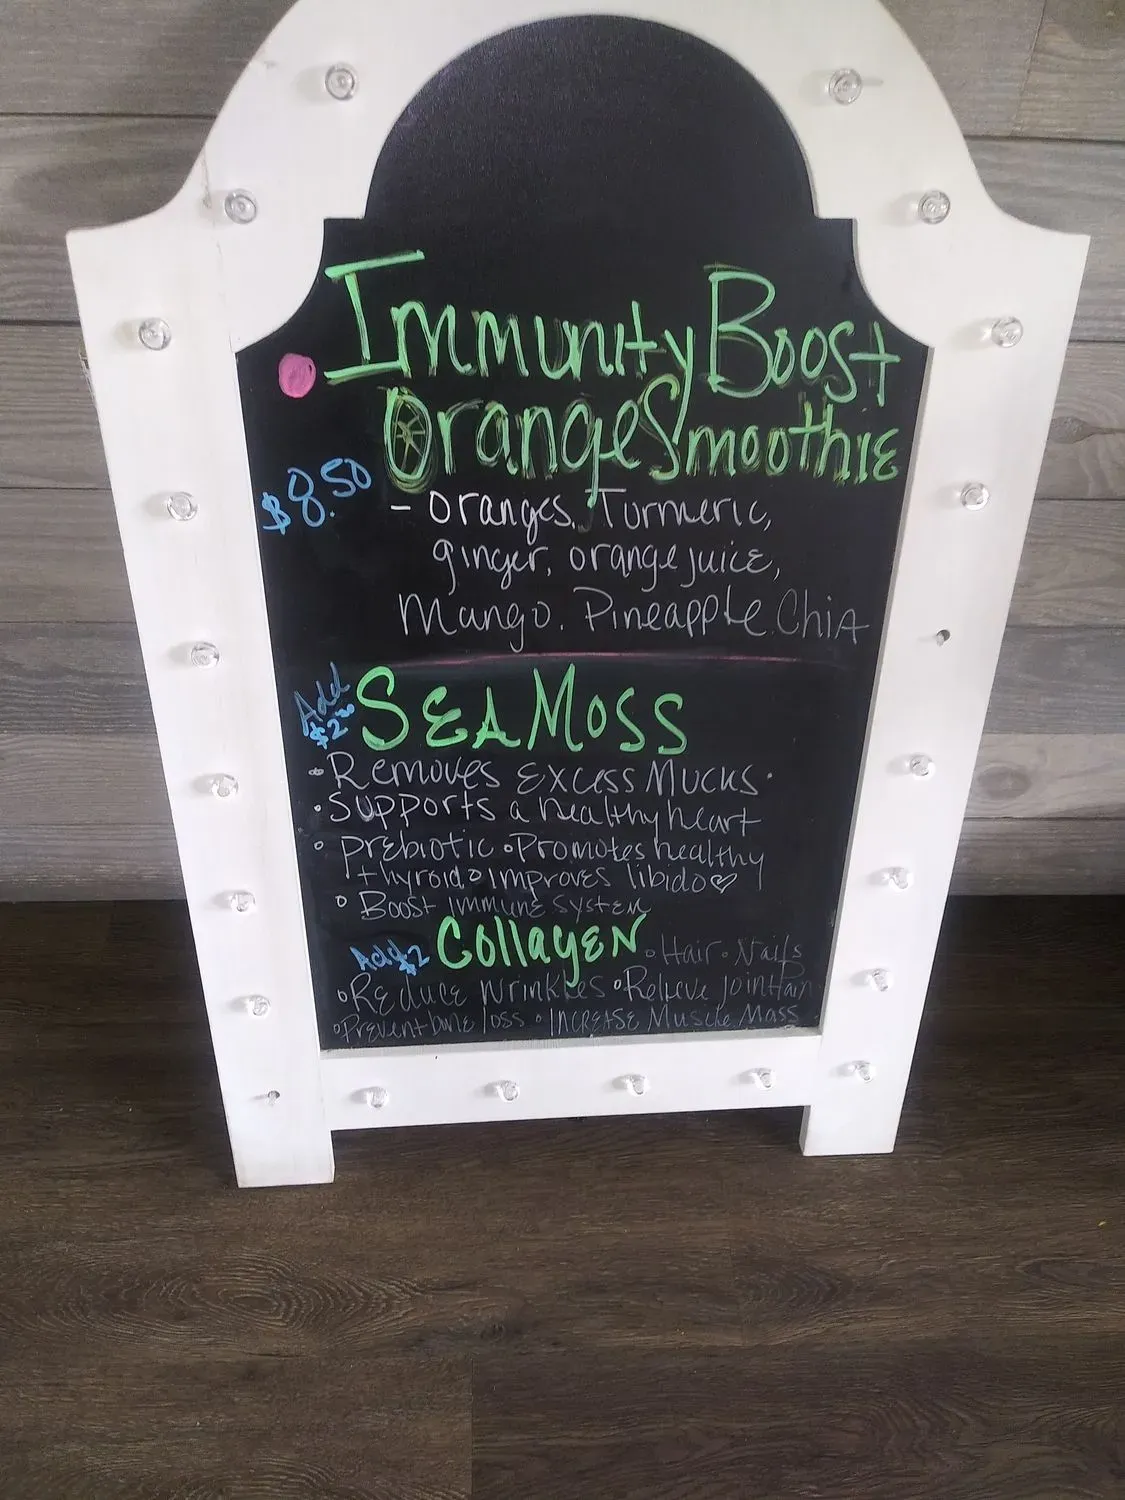 Immunity Boost
Orange Smoothie
$8.50
- Oranges, Turmeric,
ginger, orange juice,
Mango. Pineapple. Chia
Add $2⁰⁰
SEA MOSS
• Removes Excess Mucks •
• Supports a healthy heart
• prebiotic • Promotes healthy
thyroid • improves libido ♡
• Boost Immune System
Add $2 Collagen • Hair • Nails
• Reduce Wrinkles • Relieve joint Pain
• Prevent bone loss • INCREASE Muscle Mass